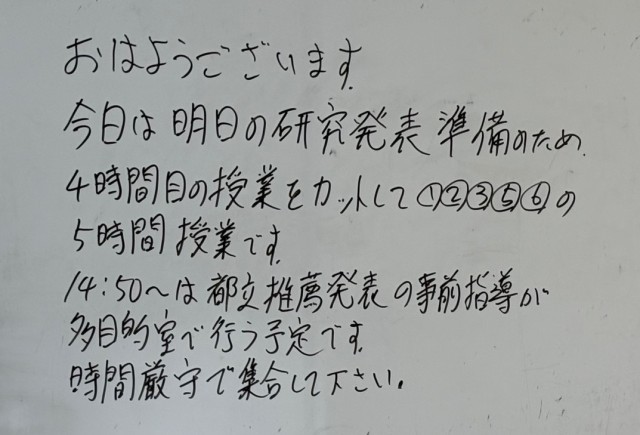 おはようございます.
今日は明日の研究発表準備のため.
4時間目の授業をカットして①②③⑤⑥の
5時間授業です.
14:50~は都立推薦発表の事前指導が
多目的室で行う予定です.
時間厳守で集合して下さい。